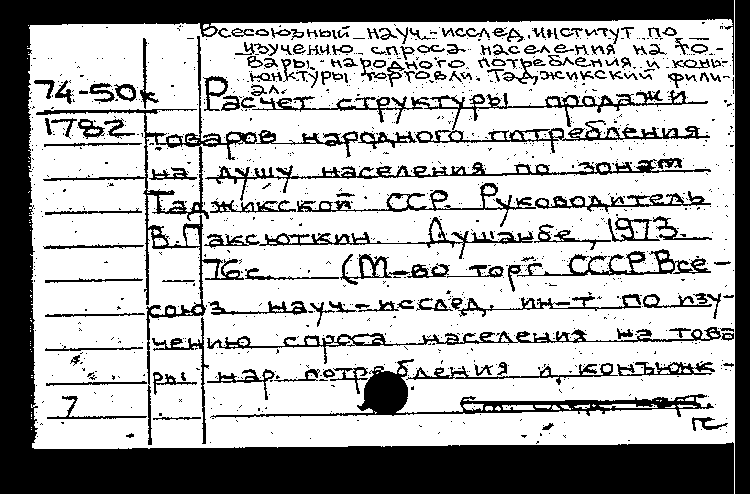 Всесоюзный науч.-исслед. институт по
изучению спроса населения на то-
вары народного потребления и конъ-
юнктуры торговли. Таджикский фили-
ал.
74-50к
1782
Расчет структуры продажи
товаров народного потребления
на душу населения по зонам
Таджикской ССР. Руководитель
В. Паксюткин. Душанбе, 1973.
76с. (М-во торг. СССР. Все-
союз. науч.-исслед. ин-т по изу-
чению спроса населения на това
ры нар. потребления и конъюнк-
7
См. след. карт.
пс